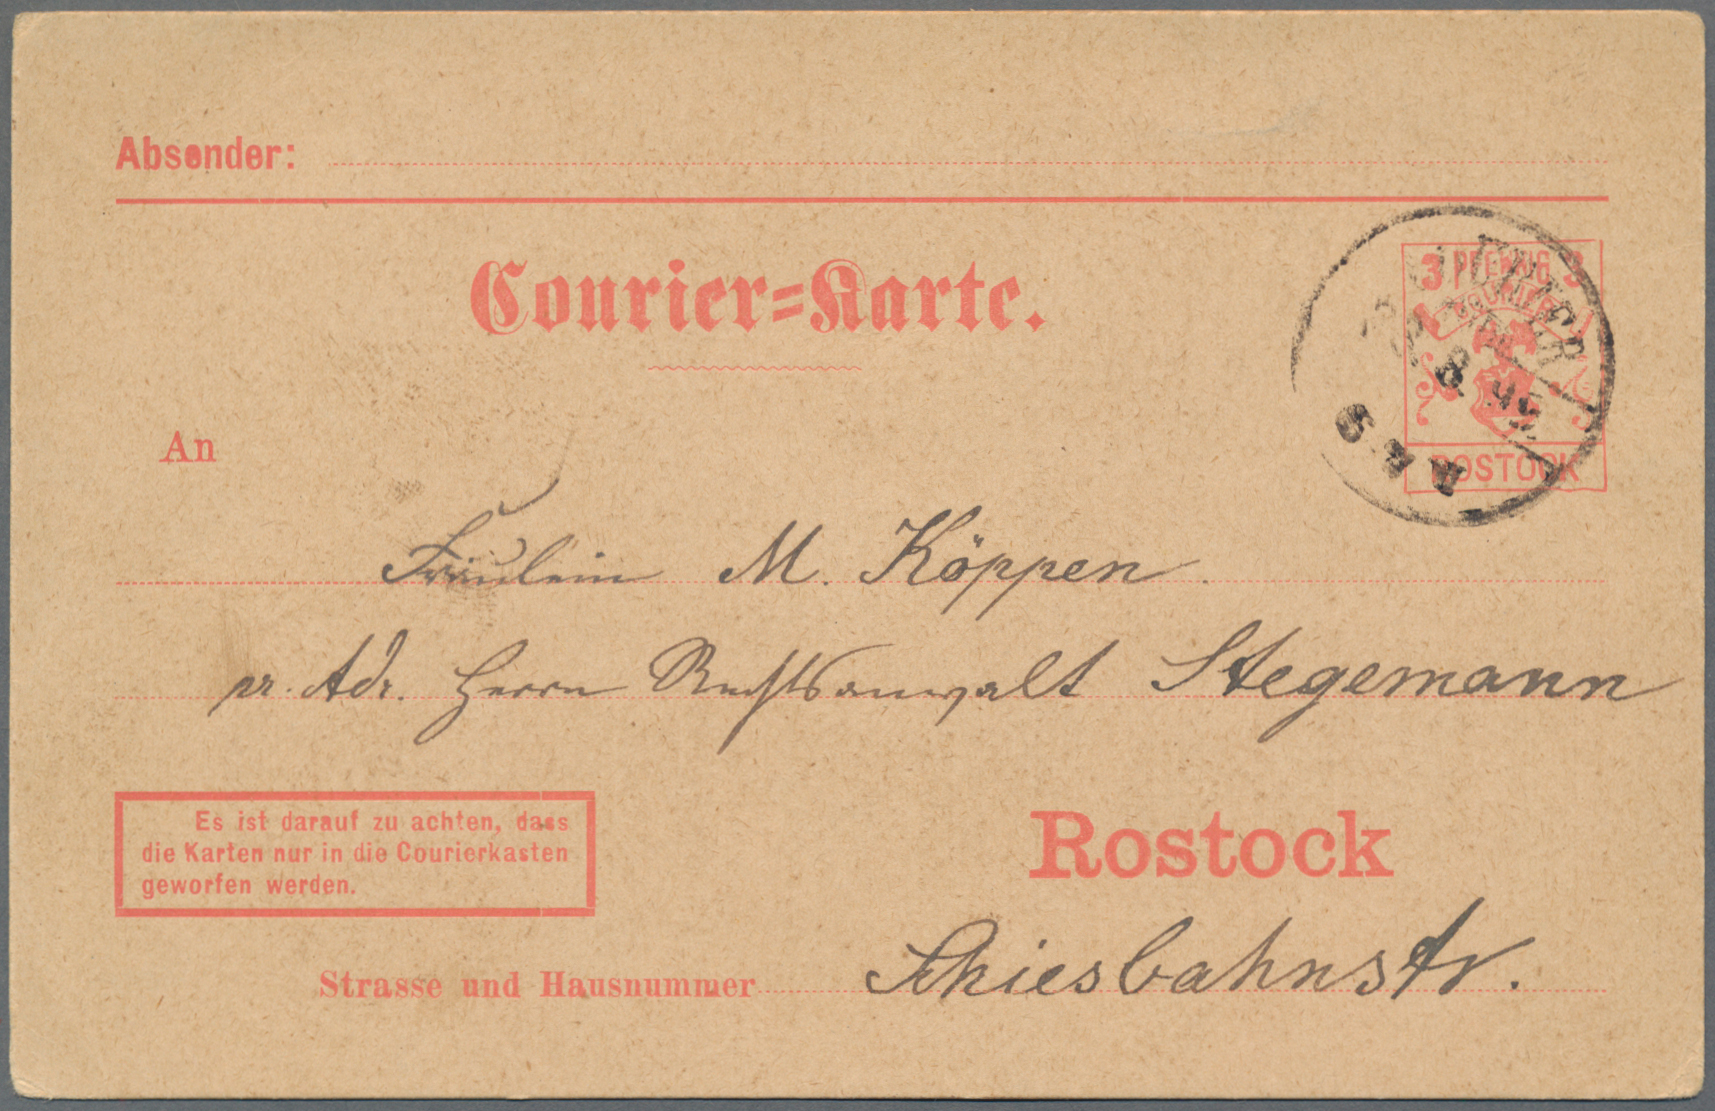 Absender:
Courier=Karte.
3 PFENNIG 3
COURIER
ROSTOCK
An
Fräulein M. Köppen.
pr. Adr. Herrn Rechtsanwalt Stegemann
Es ist darauf zu achten, dass
die Karten nur in die Courierkasten
geworfen werden.
Rostock
Strasse und Hausnummer Schiesbahnstr.